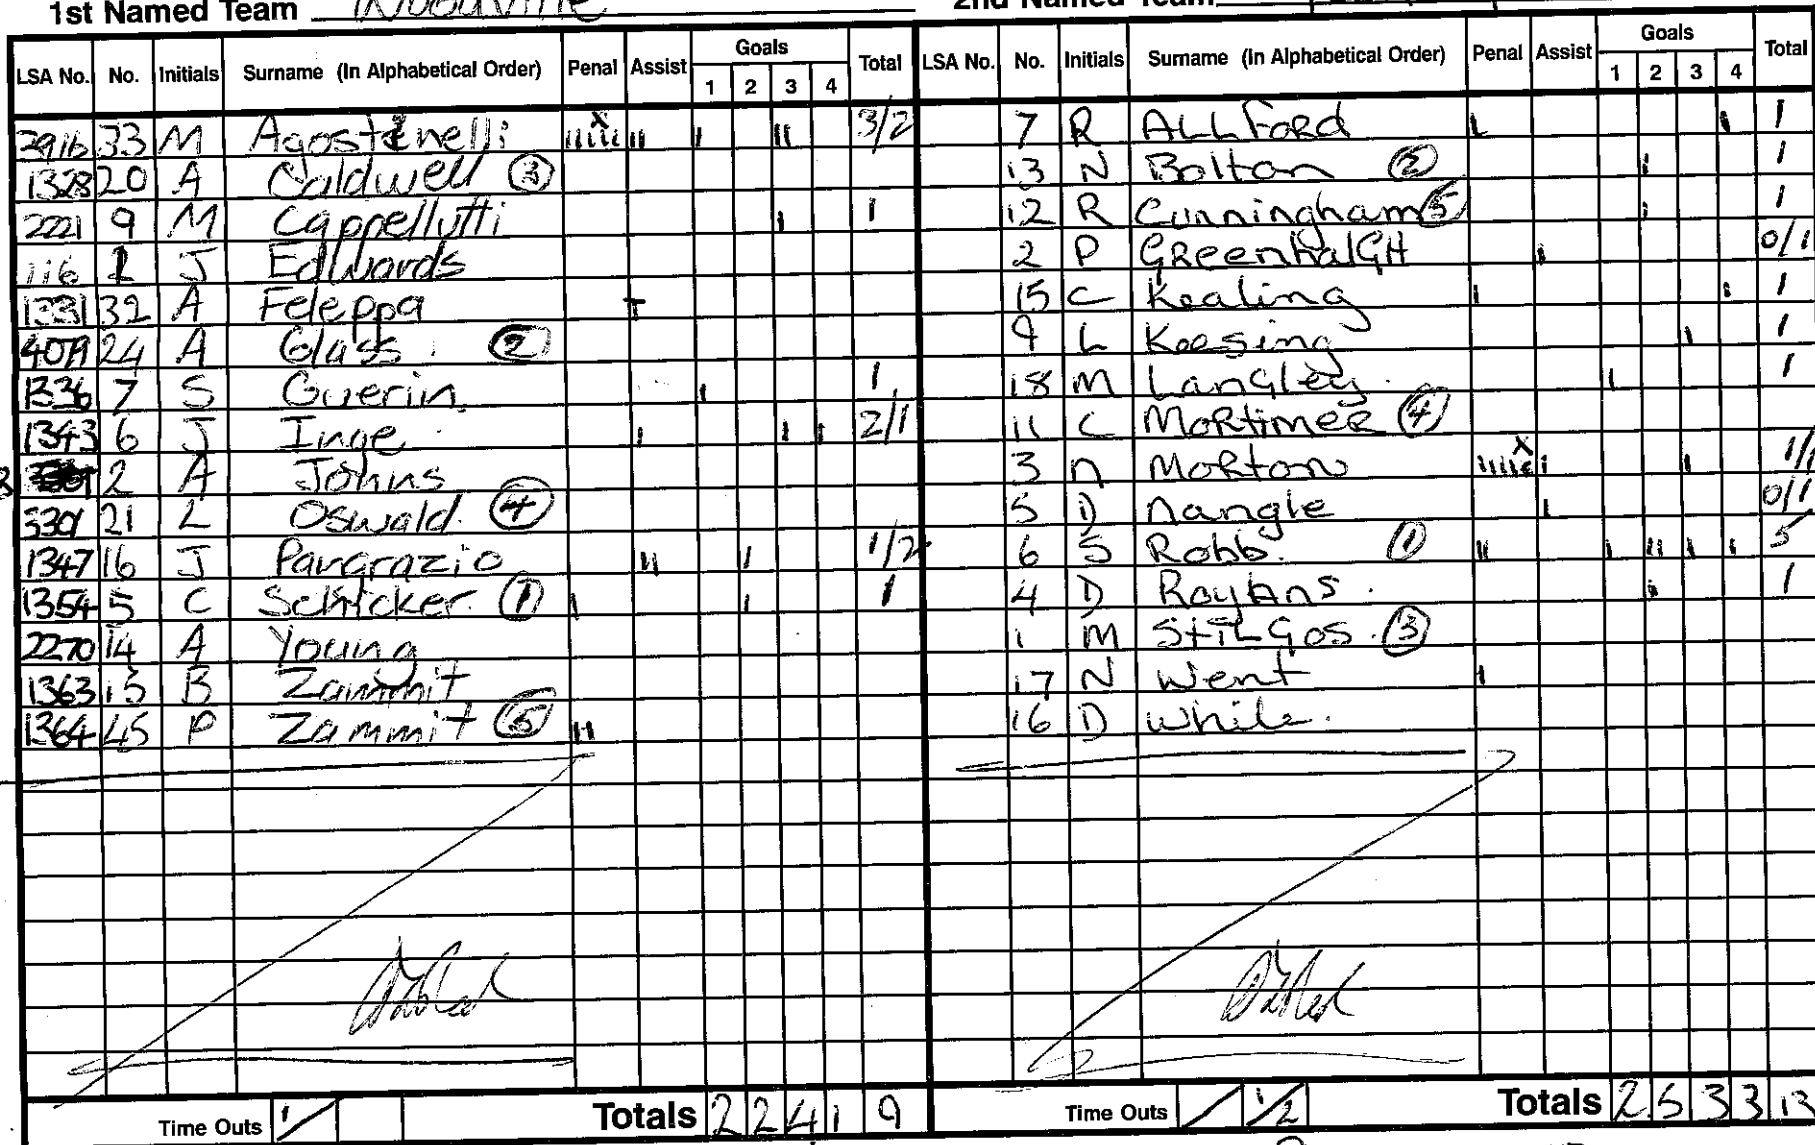 1st Named Team Woodville 2nd Named Team
LSA No. No. Initials Surname (In Alphabetical Order) Penal Assist Goals 1 2 3 4 Total
3916 33 M Agostinelli IIIII II I II 3/2
1328 20 A Caldwell (3)
2221 9 M Cappellutti I 1
116 1 J Edwards
1331 32 A Feleppa
4079 24 A Glass (2)
1336 7 S Guerin I 1
1343 6 J Inge I I I 2/1
2 A Johns
5301 21 L Oswald (4)
1347 16 J Pangrazio II I 1/2
1354 5 C Schicker (1) I I 1
2270 14 A Young
1363 15 B Zammit
1364 45 P Zammit (5) II
Time Outs 1/ Totals 2 2 4 1 9
LSA No. No. Initials Surname (In Alphabetical Order) Penal Assist Goals 1 2 3 4 Total
7 R ALLFORD I I 1
13 N Bolton (2) I 1
12 R Cunningham (5) I 1
2 P GReenhalGH I 0/1
15 C Kealing I I 1
9 L Keesing I 1
18 M Langley I 1
11 C MoRtimeR (4)
3 n MoRton IIIII X I I 1/1
5 D Nangle I 0/1
6 S Robb. (1) II I II I I 5
4 D Roylans I 1
1 M StilGos (3)
17 N Went I
16 D While.
Time Outs / 1/2 Totals 2 5 3 3 13